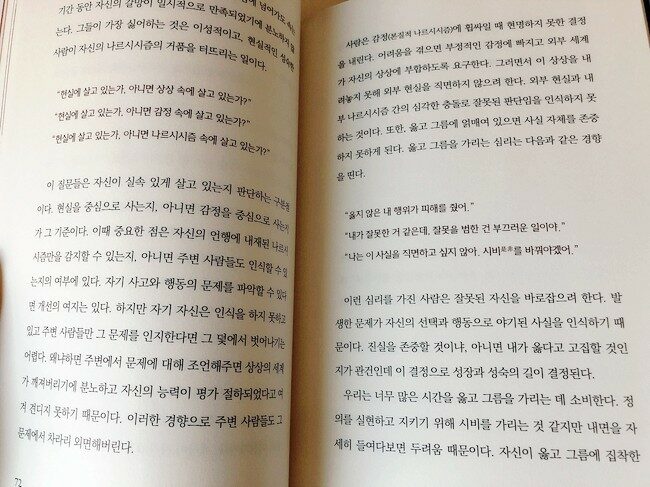 기간 동안 자신의 갈망이 일시적으로 만족되었기에 분노하게 되
는다. 그들이 가장 싫어하는 것은 이성적이고, 현실적인 성숙한
사람이 자신의 나르시시즘의 거품을 터뜨리는 일이다.
“현실에 살고 있는가, 아니면 상상 속에 살고 있는가?”
“현실에 살고 있는가, 아니면 감정 속에 살고 있는가?”
“현실에 살고 있는가, 아니면 나르시시즘 속에 살고 있는가?”
이 질문들은 자신이 실속 있게 살고 있는지 판단하는 구분점
이다. 현실을 중심으로 사는지, 아니면 감정을 중심으로 사는지
가 그 기준이다. 이때 중요한 점은 자신의 언행에 내재된 나르시
시즘만을 감지할 수 있는지, 아니면 주변 사람들도 인식할 수 있
는지의 여부에 있다. 자기 사고와 행동의 문제를 파악할 수 있다
면 개선의 여지는 있다. 하지만 자기 자신은 인식을 하지 못하고
있고 주변 사람들만 그 문제를 인지한다면 그 덫에서 벗어나기는
어렵다. 왜냐하면 주변에서 문제에 대해 조언해주면 상상의 세계
가 깨져버리기에 분노하고 자신의 능력이 평가 절하되었다고 여
겨 견디지 못하기 때문이다. 이러한 경향으로 주변 사람들도 그
문제에서 차라리 외면해버린다.
72
사람은 감정(본질적 나르시시즘)에 휩싸일 때 현명하지 못한 결정
을 내린다. 어려움을 겪으면 부정적인 감정에 빠지고 외부 세계
가 자신의 상상에 부합하도록 요구한다. 그러면서 이 상상을 내
려놓지 못해 외부 현실을 직면하지 않으려 한다. 외부 현실과 내
부 나르시시즘 간의 심각한 충돌로 잘못된 판단임을 인식하지 못
하는 것이다. 또한, 옳고 그름에 얽매여 있으면 사실 자체를 존중
하지 못하게 된다. 옳고 그름을 가리는 심리는 다음과 같은 경향
을 띤다.
“옳지 않은 내 행위가 피해를 줬어.”
“내가 잘못한 거 같은데, 잘못을 범한 건 부끄러운 일이야.”
“나는 이 사실을 직면하고 싶지 않아. 시비是非를 바꿔야겠어.”
이런 심리를 가진 사람은 잘못된 자신을 바로잡으려 한다. 발
생한 문제가 자신의 선택과 행동으로 야기된 사실을 인식하기 때
문이다. 진실을 존중할 것이냐, 아니면 내가 옳다고 고집할 것인
지가 관건인데 이 결정으로 성장과 성숙의 길이 결정된다.
우리는 너무 많은 시간을 옳고 그름을 가리는 데 소비한다. 정
의를 실현하고 지키기 위해 시비를 가리는 것 같지만 내면을 자
세히 들여다보면 두려움 때문이다. 자신이 옳고 그름에 집착한